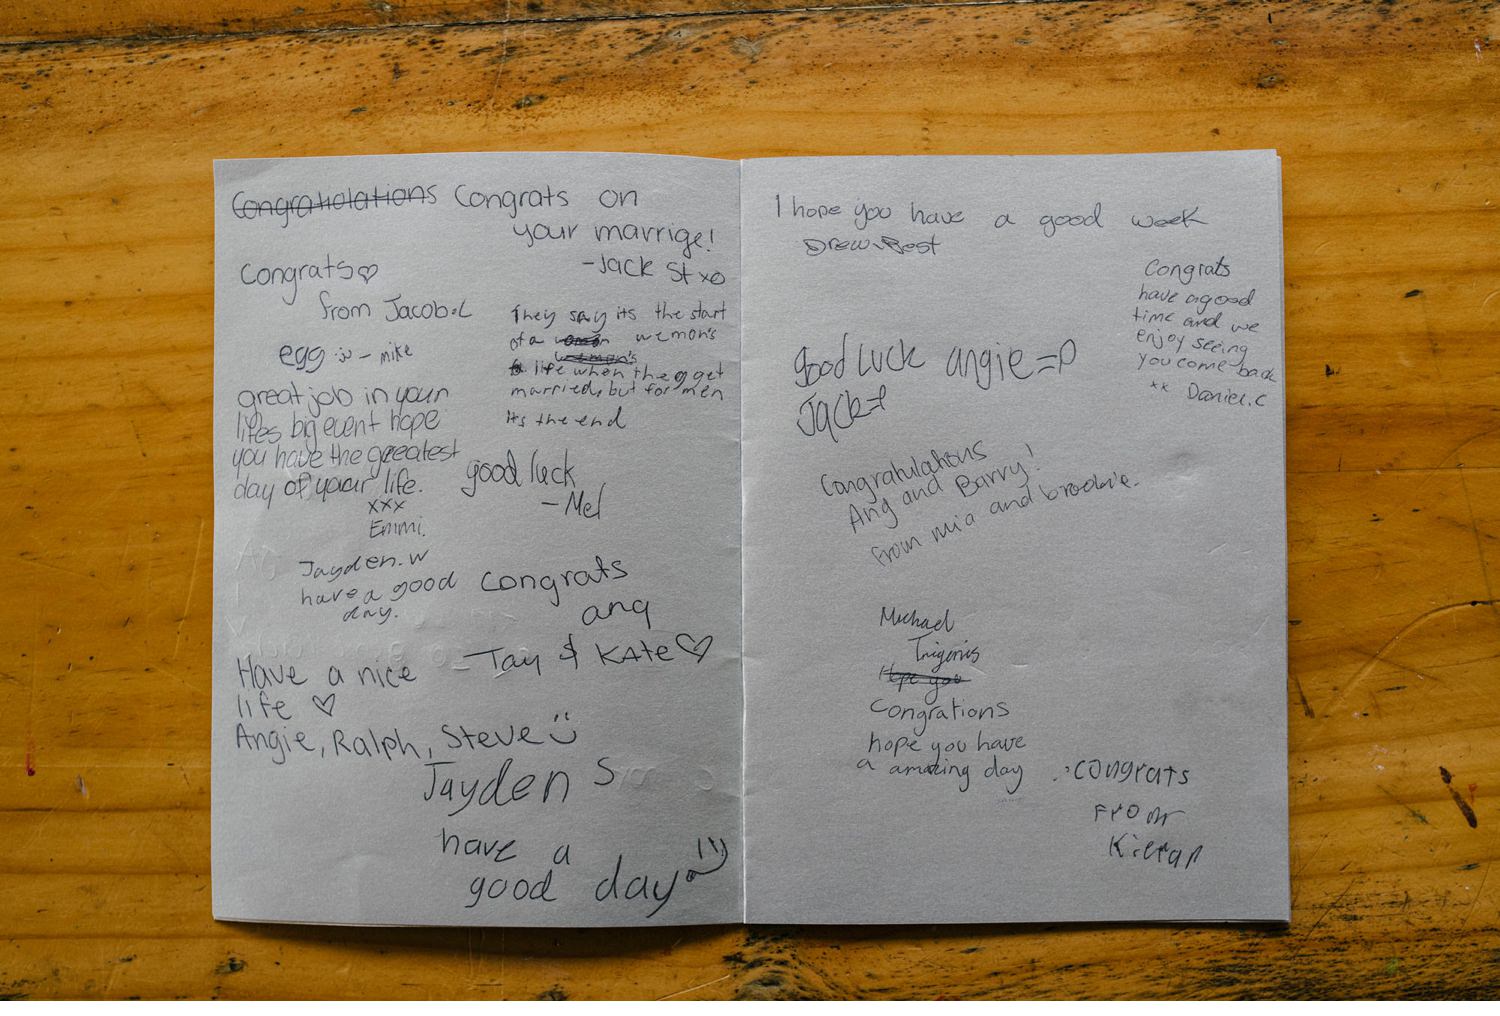 Congratiolations Congrats on
your marrige!
-Jack St xo
Congrats♡
from Jacob.L
egg :) - mike
They say its the start
of a women wemon's
life when the get
married, but for men
its the end
great job in your
lifes big event hope
you have the greatest
day of your life.
xxx
Emmi.
good luck
- Mel
Jayden.W
have a good
day.
Congrats
ang
Tay & KAte♡
Have a nice
life ♡
Angie, Ralph, Steve :)
Jayden S
have a
good day :)
I hope you have a good week
Drew.Best
Congrats
have a good
time and we
enjoy seeing
you come back
xx Daniel.C
good luck angie =P
Jack =P
Congratulations
Ang and Barry!
from mia and brookie.
Michael
Hope you
Congrations
hope you have
a amazing day
congrats
From
Kieran